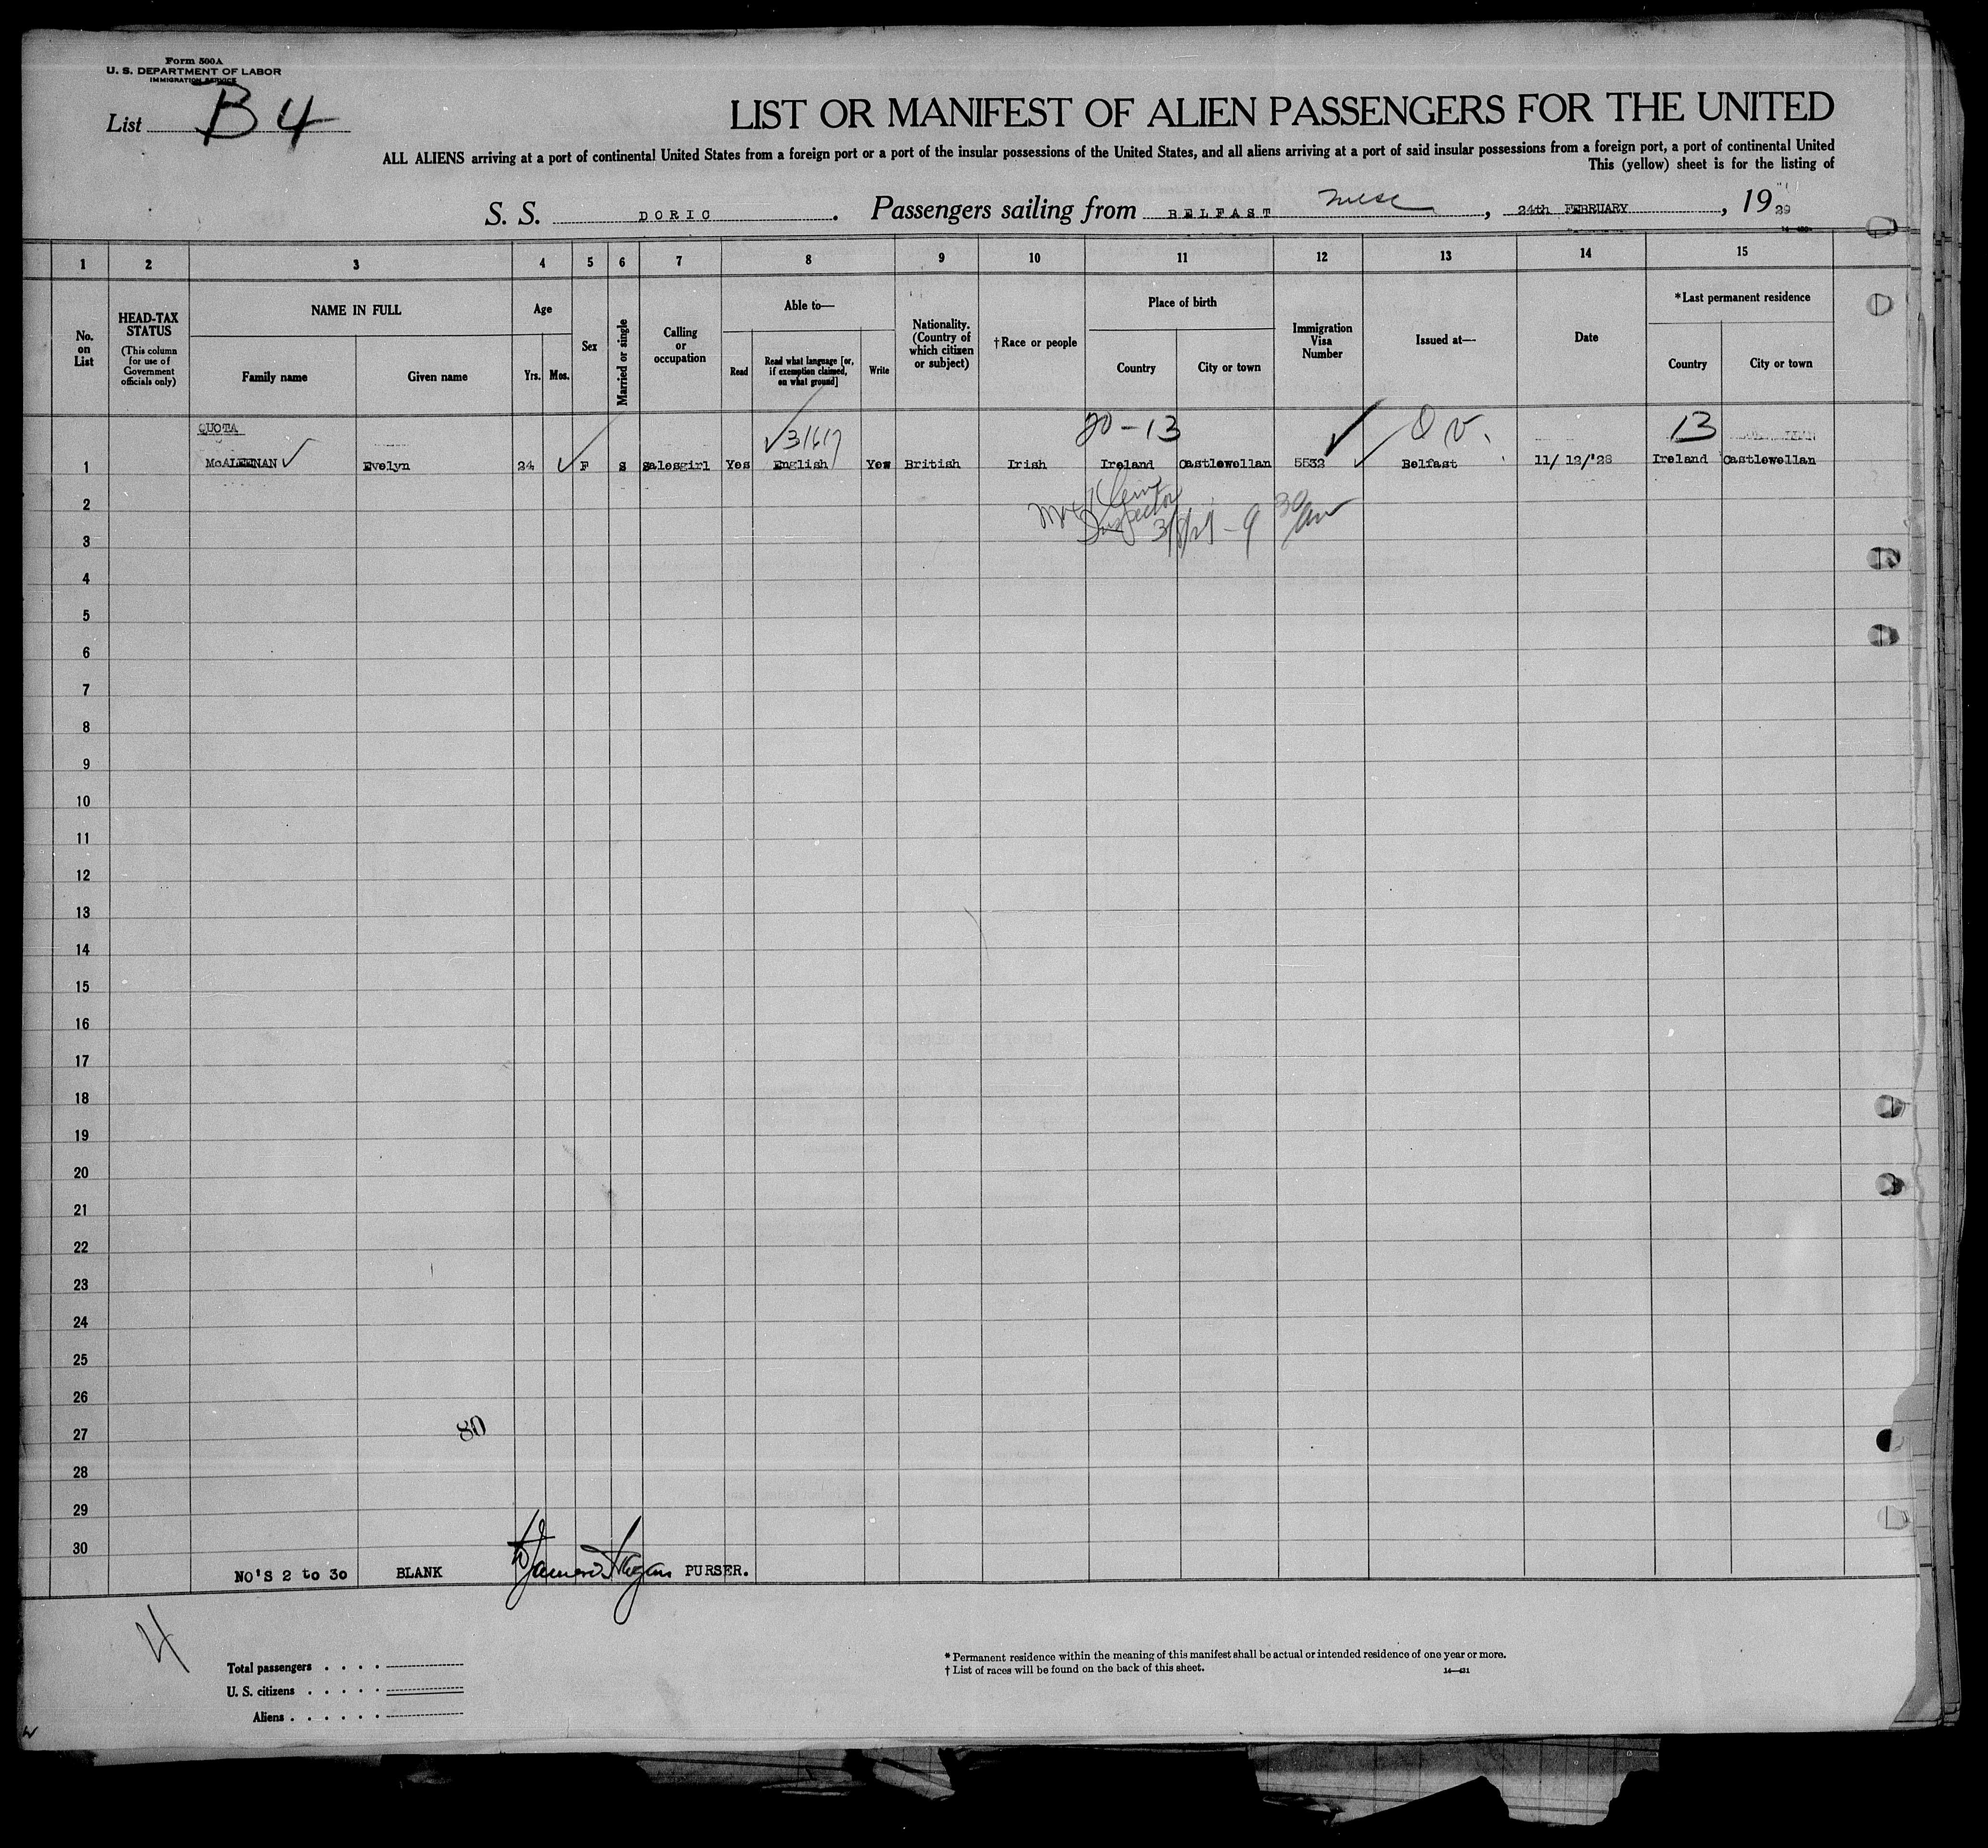 Form 500A
U. S. DEPARTMENT OF LABOR
IMMIGRATION SERVICE
List B4
LIST OR MANIFEST OF ALIEN PASSENGERS FOR THE UNITED
ALL ALIENS arriving at a port of continental United States from a foreign port or a port of the insular possessions of the United States, and all aliens arriving at a port of said insular possessions from a foreign port, a port of continental United
This (yellow) sheet is for the listing of
S. S. DORIC. Passengers sailing from BELFAST, 24th FEBRUARY, 1929
1 2 3 4 5 6 7 8 9 10 11 12 13 14 15
No. on List
HEAD-TAX STATUS
(This column for use of Government officials only)
NAME IN FULL
Family name
Given name
Age
Yrs.
Mos.
Sex
Married or single
Calling or occupation
Able to—
Read
Read what language [or, if exemption claimed, on what ground]
Write
Nationality. (Country of which citizen or subject)
†Race or people
Place of birth
Country
City or town
Immigration Visa Number
Issued at—
Date
*Last permanent residence
Country
City or town
QUOTA 20-13 13
1 McALEENAN Evelyn 24 F S Salesgirl Yes English Yes British Irish Ireland Castlewellan 5532 Belfast 11/ 12/'28 Ireland Castlewellan
2
Inspector
3
4
5
6
7
8
9
10
11
12
13
14
15
16
17
18
19
20
21
22
23
24
25
26
27 80
28
29
30
NO'S 2 to 30 BLANK PURSER.
4
Total passengers . . . .
U. S. citizens . . . . .
Aliens . . . . . .
* Permanent residence within the meaning of this manifest shall be actual or intended residence of one year or more.
† List of races will be found on the back of this sheet.
14—431